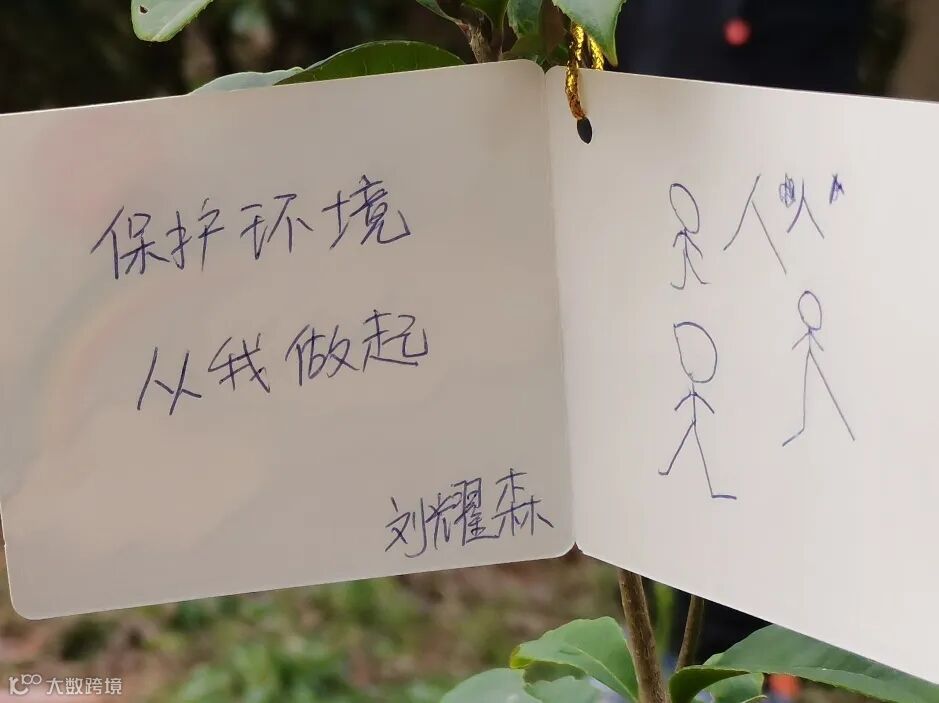 保护环境
从我做起
刘耀森
人从
大数跨境